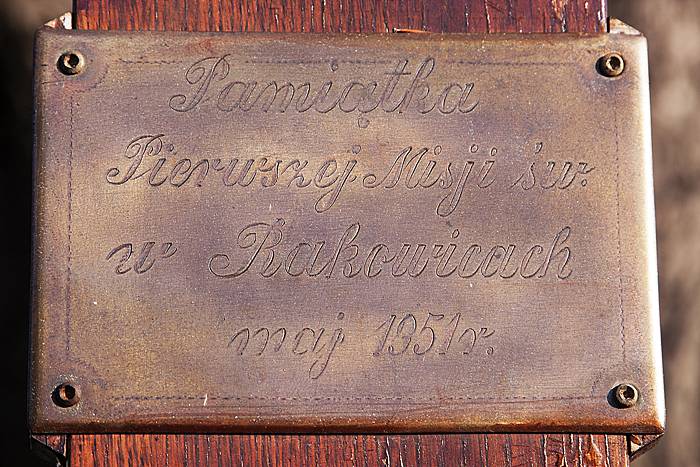 Pamiątka
Pierwszej Misji św.
w Rakowicach
maj 1951r.